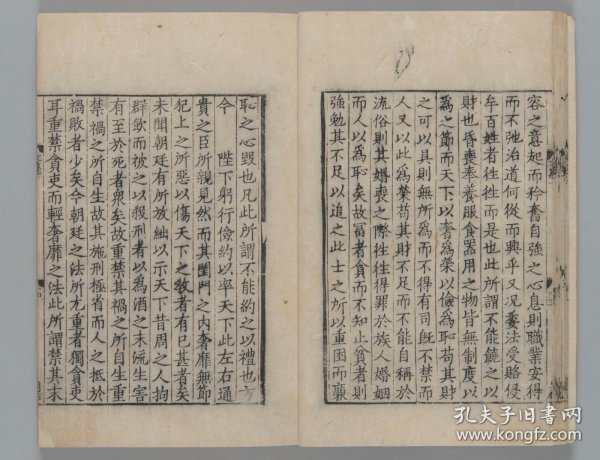 容之意起而矜奮自強之心息則職業安得
而不弛治道何從而興乎又况委法受賂侵
牟百姓者往往而是也此所謂不能饒之以
財也㫚喪奉養服食器用之物皆無制度以
為之節而天下以奢為榮以儉為恥苟其財
之可以具則無所為而不得有司既不禁而
人又以此為榮苟其財不足而不能自稱於
流俗則其婚喪之際往往得罪於族人婚姻
而人以為恥矣故富者貪而不知止貧者則
強勉其不足以追之此士之所以重困而廉
恥之心毀也凡此所謂不能約之以禮也
今 陛下躬行儉約以率天下此左右通
貴之臣所親見然而其閨門之内奢靡無節
犯上之所惡以傷天下之敎者有已甚者矣
未聞朝廷有所放絀以示天下昔周之人拘
群飲而被之以殺刑者以為酒之末流生害
有至於死者衆矣故重禁其禍之所自生重
禁禍之所自生故其施刑極省而人之抵於
禍敗者少矣今朝廷之法所尤重者獨貪吏
耳重禁貪吏而輕奢靡之法此所謂禁其末
孔夫子旧书网
www.kongfz.com